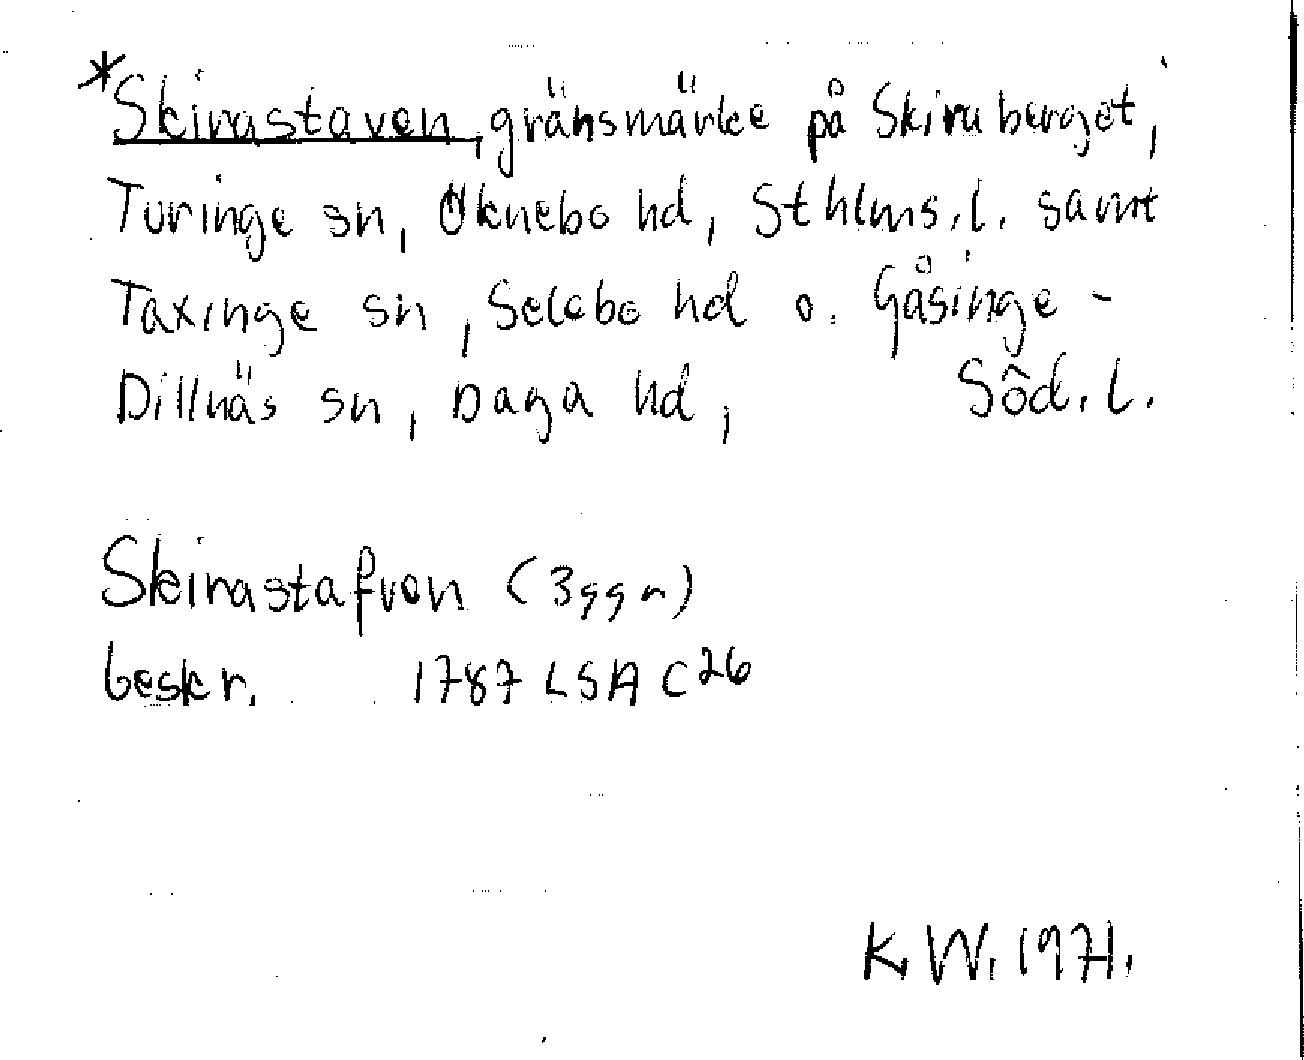 *Skirastaven, gränsmärke på Skiraberget,
Turinge sn, Öknebo hd, Sthlms.l. samt
Taxinge sn, Selebo hd o. Gåsinge-
Dillnäs sn, Daga hd, Söd.l.
Skirastafven (3ggr)
beskr. 1787 LSA C26
K.W. 1971.